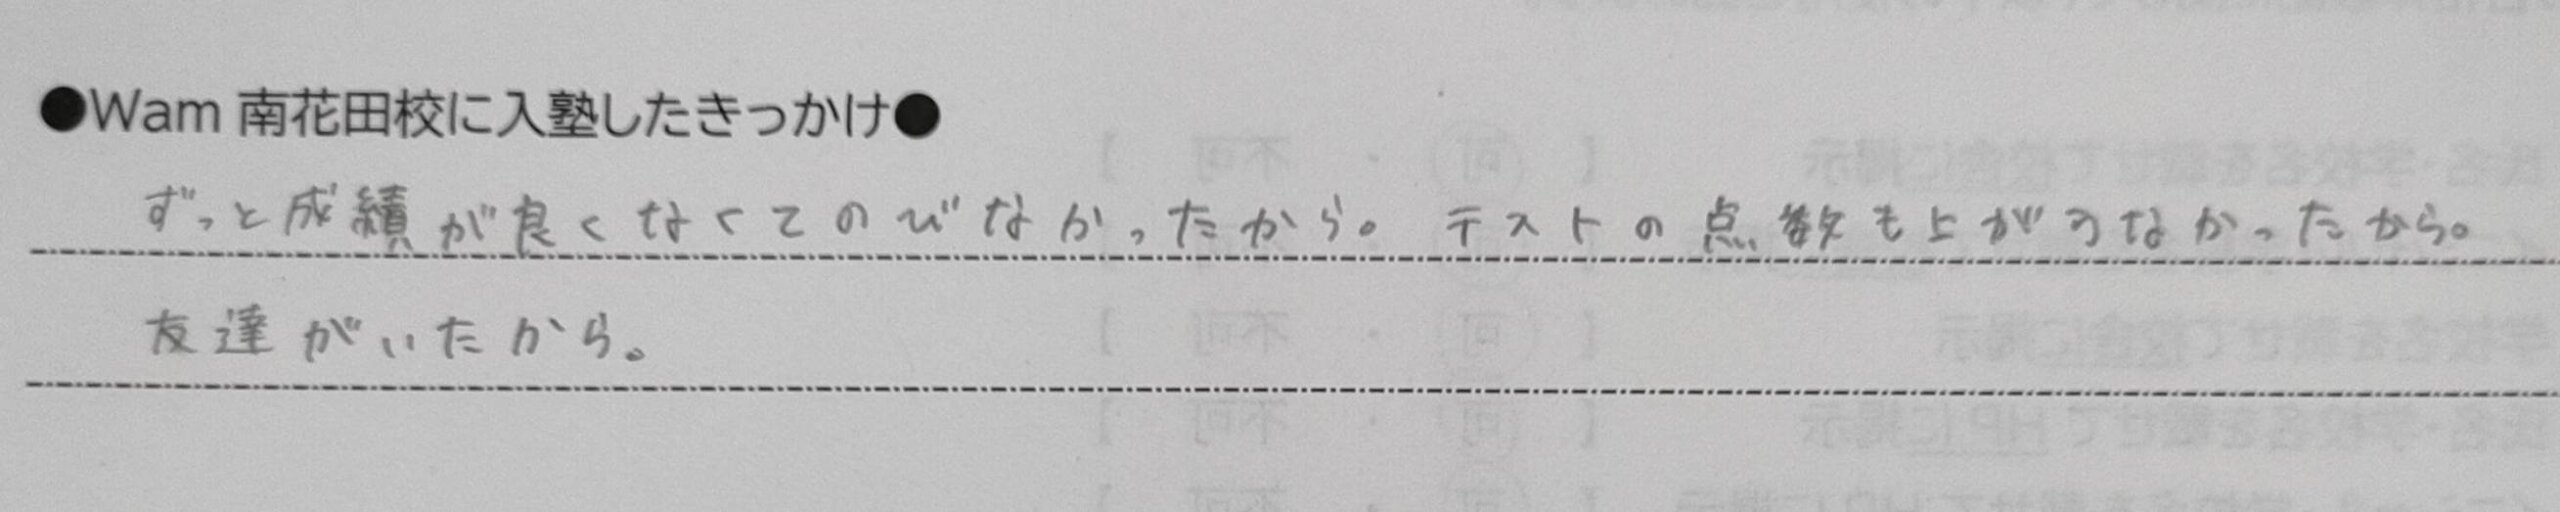 ●Wam 南花田校に入塾したきっかけ●
ずっと成績が良くなくてのびなかったから。テストの点数も上がらなかったから。
友達がいたから。